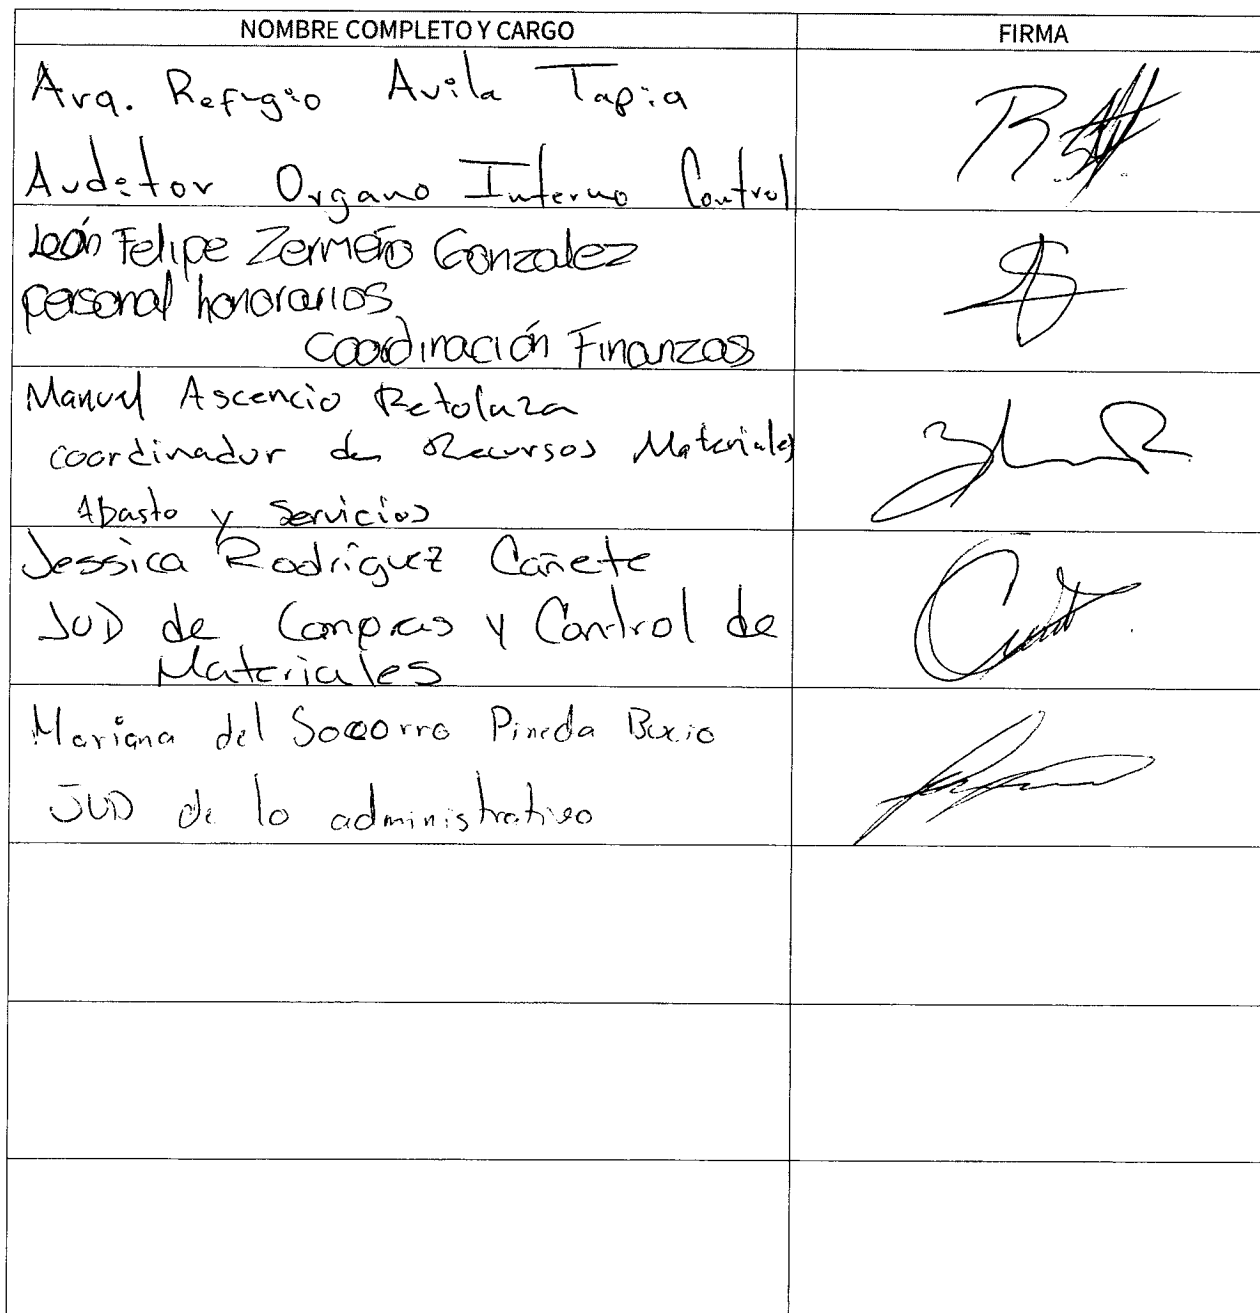 NOMBRE COMPLETO Y CARGO FIRMA
Arq. Refugio Avila Tapia
Auditor Organo Interno Control
León Felipe Zermeño Gonzalez
personal honorarios
Coordinación Finanzas
Manuel Ascencio Retolaza
coordinador de Recursos Materiales
Abasto y Servicios
Jessica Rodríguez Cañete
JUD de Compras y Control de
Materiales
Mariana del Socorro Pineda
JUD de lo administrativo